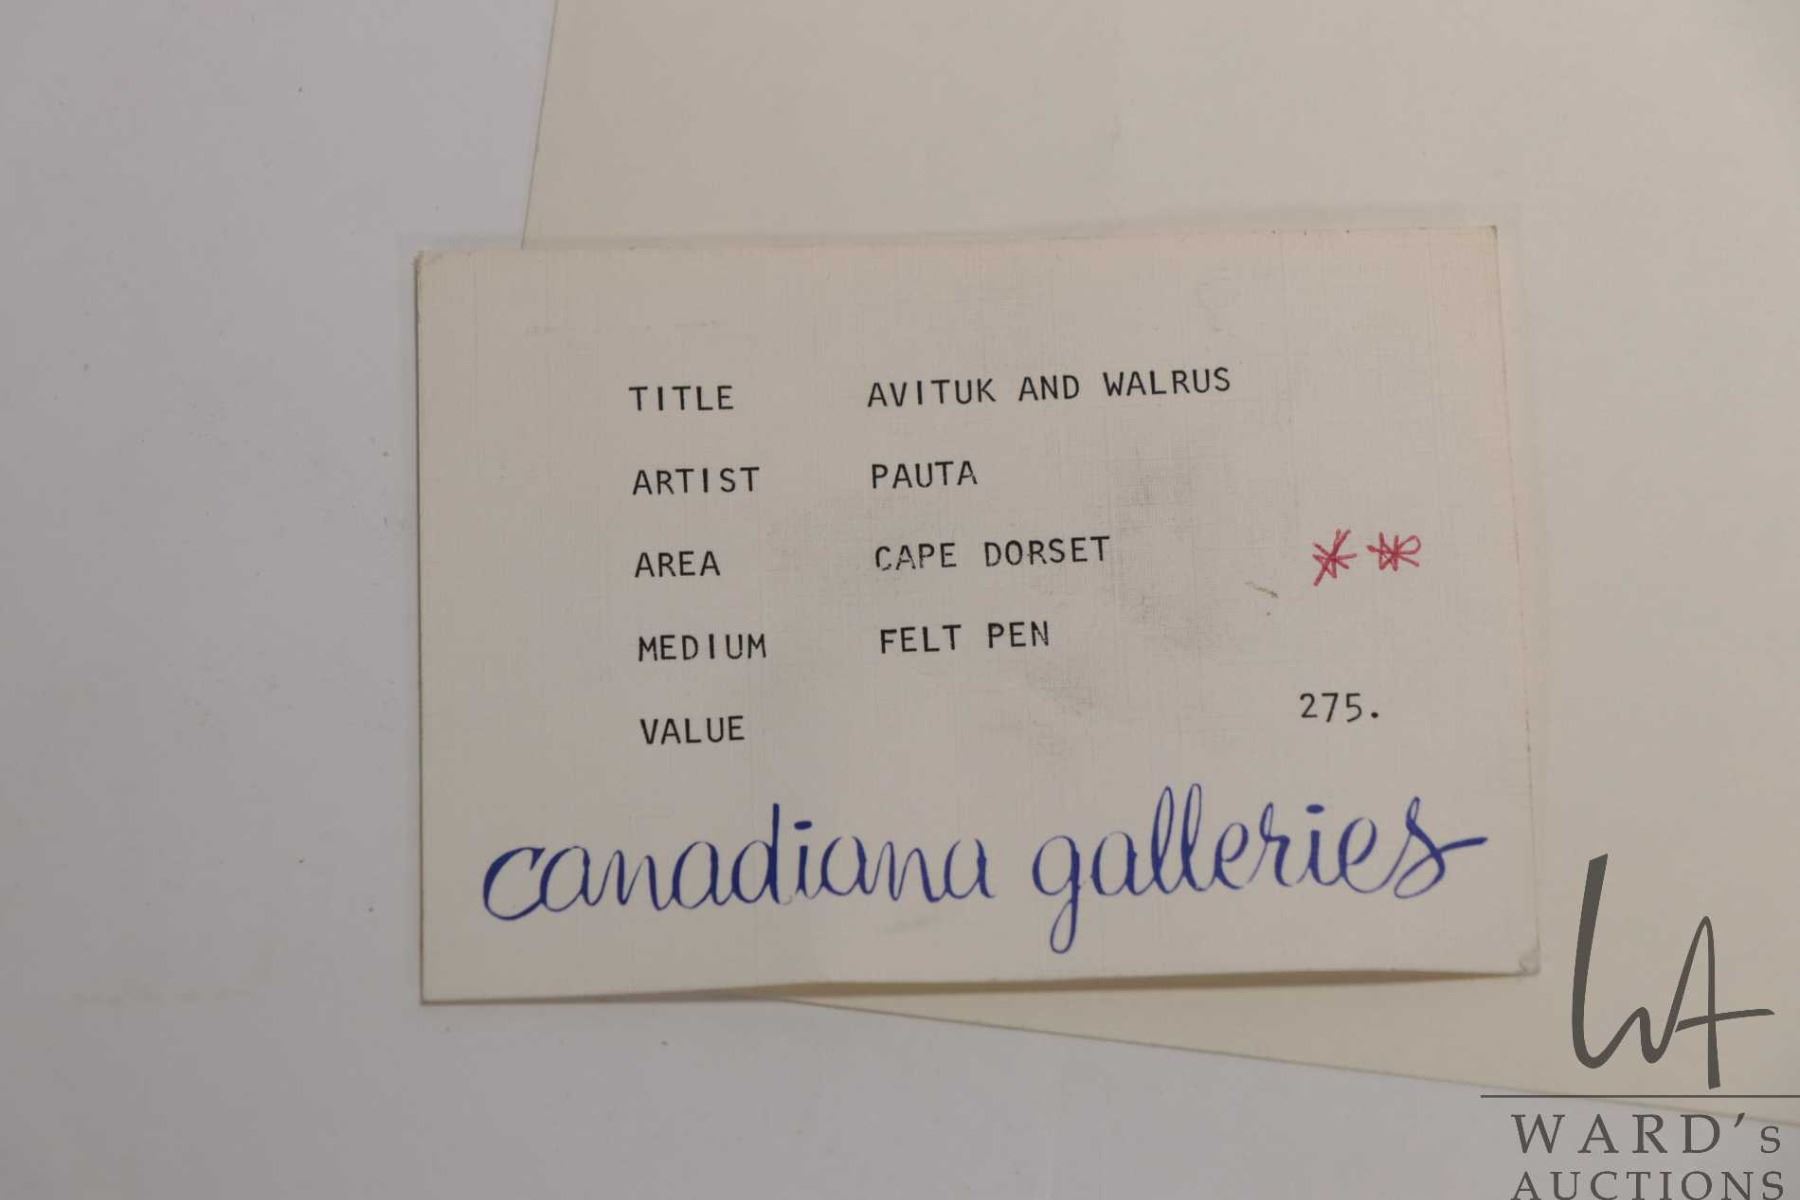 TITLE AVITUK AND WALRUS
ARTIST PAUTA
AREA CAPE DORSET **
MEDIUM FELT PEN
VALUE 275.
canadiana galleries
WA
WARD's
AUCTIONS